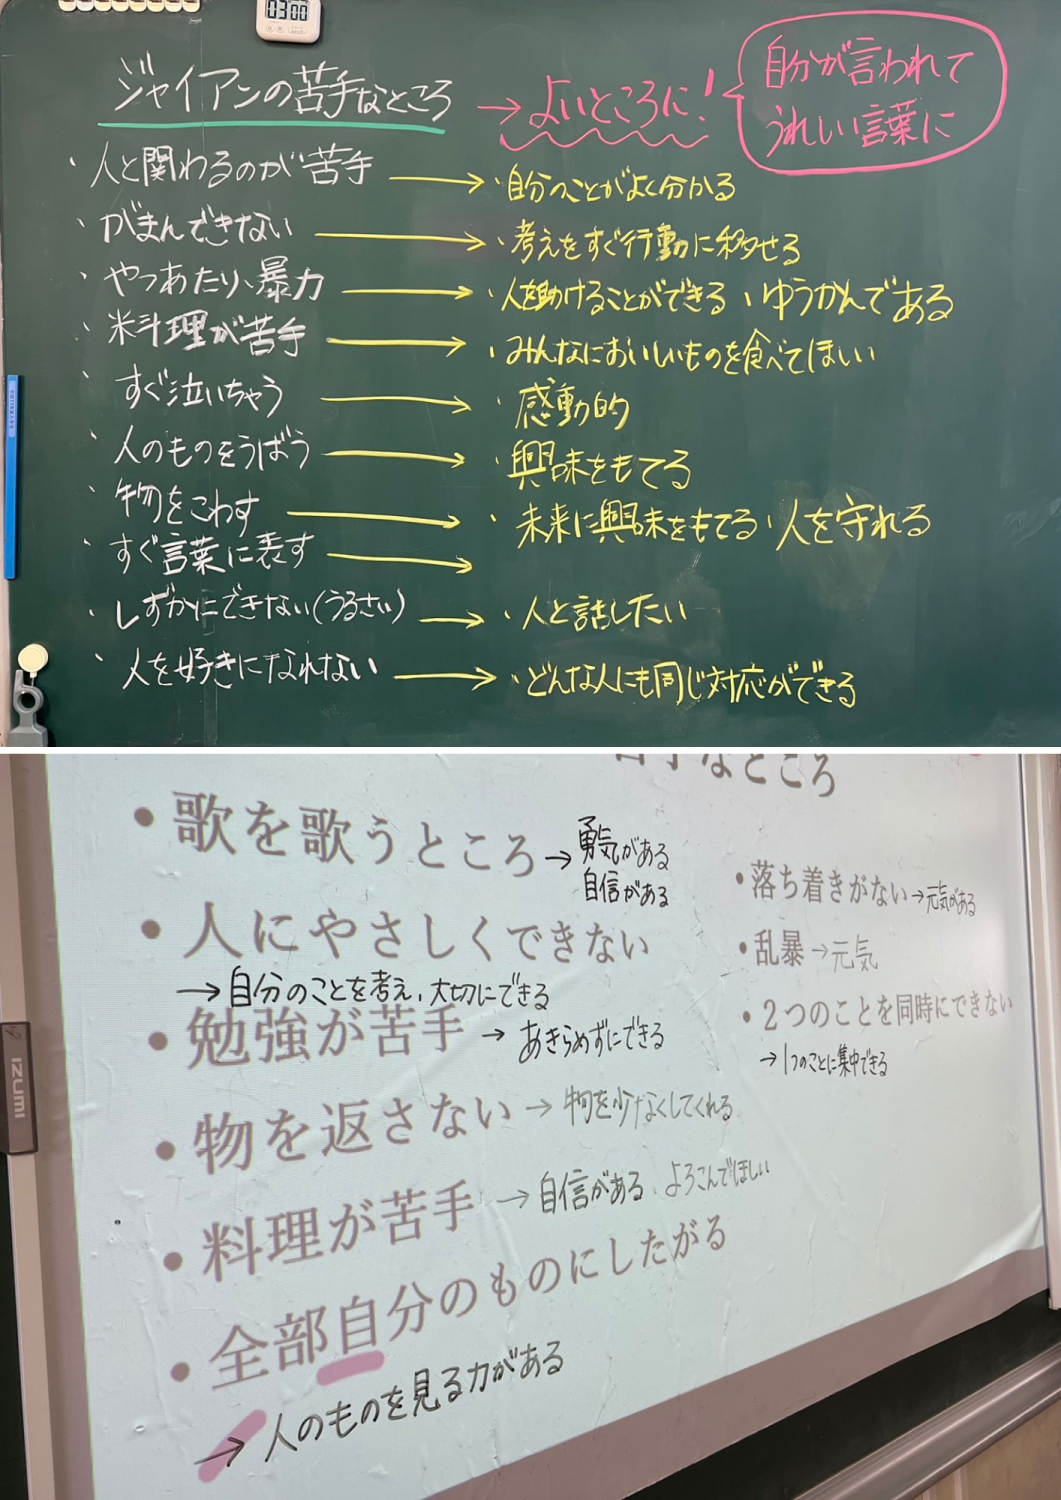 03:00
ジャイアンの苦手なところ → よいところに!
自分が言われて
うれしい言葉に
・人と関わるのが苦手 → ・自分のことがよく分かる
・がまんできない → ・考えをすぐ行動に移せる
・やつあたり、暴力 → ・人を助けることができる ・ゆうかんである
・料理が苦手 → ・みんなにおいしいものを食べてほしい
・すぐ泣いちゃう → ・感動的
・人のものをうばう → ・興味をもてる
・物をこわす → ・未来に興味をもてる・人を守れる
・すぐ言葉に表す →
・しずかにできない(うるさい) → ・人と話したい
・人を好きになれない → ・どんな人にも同じ対応ができる
苦手なところ
・歌を歌うところ → 勇気がある
自信がある
・人にやさしくできない
→ 自分のことを考え、大切にできる
・勉強が苦手 → あきらめずにできる
・物を返さない → 物を少なくしてくれる
・料理が苦手 → 自信がある、よろこんでほしい
・全部自分のものにしたがる
→ 人のものを見る力がある
・落ち着きがない → 元気がある
・乱暴 → 元気
・2つのことを同時にできない
→ 1つのことに集中できる
IZUMI